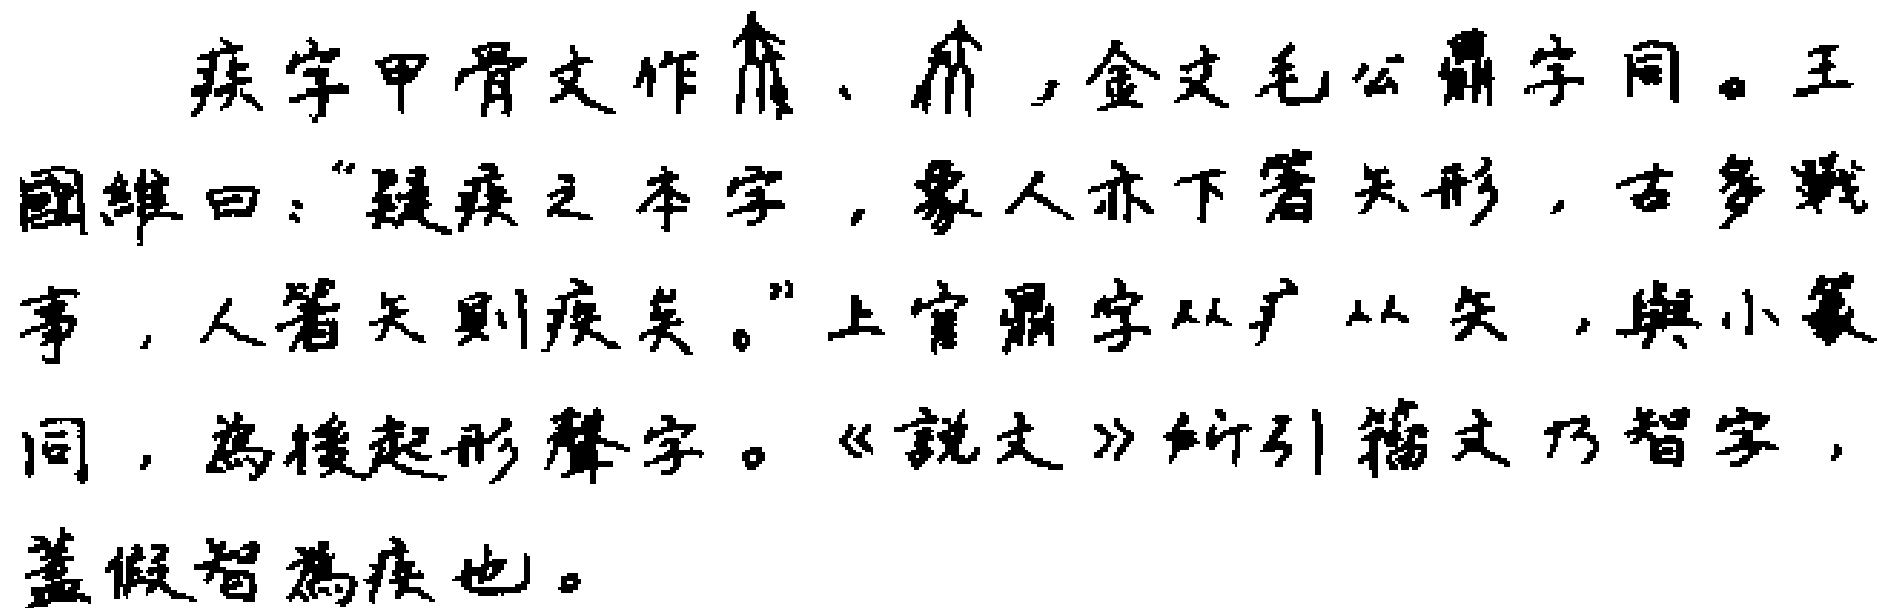 疾字甲骨文作、，金文毛公鼎字同。王
國維曰：“疑疾之本字，象人亦下箸矢形，古多戰
事，人箸矢則疾矣。”上官鼎字从疒从矢，與小篆
同，為後起形聲字。《説文》所引籀文乃智字，
蓋假智為疾也。